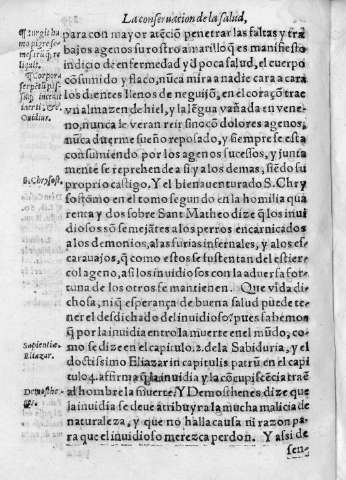 La conseruacion de la salud,
para con mayor atẽciõ penetrar las faltas y tra
bajos agenos su rostro amarillo q̃ es manifiesto
indicio de enfermedad y d̃ poca salud, el cuerpo
cõsumido y flaco, nũca mira a nadie cara a cara
los dientes llenos de neguijõ, en el coraçõ trae
vn almazen de hiel, y la lẽgua vañada en vene-
no, nunca le veran reir sino cõ dolores agenos,
nũca duerme sueño reposado, y siempre se esta
consumiendo por los agenos sucessos, y junta
mente se reprehende a si y a los demas, siẽdo su
proprio castigo. Y el bienauenturado S. Chry
sostomo en el tomo segundo en la homilia qua
renta y dos sobre Sant Matheo dize q̃ los inui
diosos sõ semejãtes a los perros encarniçados
a los demonios, a las furias infernales, y a los es
carauajos, q̃ como estos se sustentan del estier
col ageno, asi los inuidiosos con la aduersa for
tuna de los otros se mantienen. Que vida di-
chosa, ni q̃ esperança de buena salud puede te-
ner el desdichado del inuidioso? pues sabemos
q̃ por la inuidia entro la muerte en el mũdo, co-
mo se dize en el capitulo. 2. de la Sabiduria, y el
doctissimo Eliazar in capitulis patrũ en el capi
tulo 4. affirma q̃ la inuidia y la cõcupiscẽcia traẽ
al hombre la muerte. Y Demosthenes dize que
la inuidia se deue atribuyr a la mucha malicia de
naturaleza, y que no halla causa ni razon pa-
ra que el inuidioso merezca perdon. Y assi de
sen-
¶ Surgit hu
mo pigre ser
mesrũq; re
liquit.
¶ Corpore
Ouidius.
S. Chrysost.
Sapientiæ.
Eliazar.